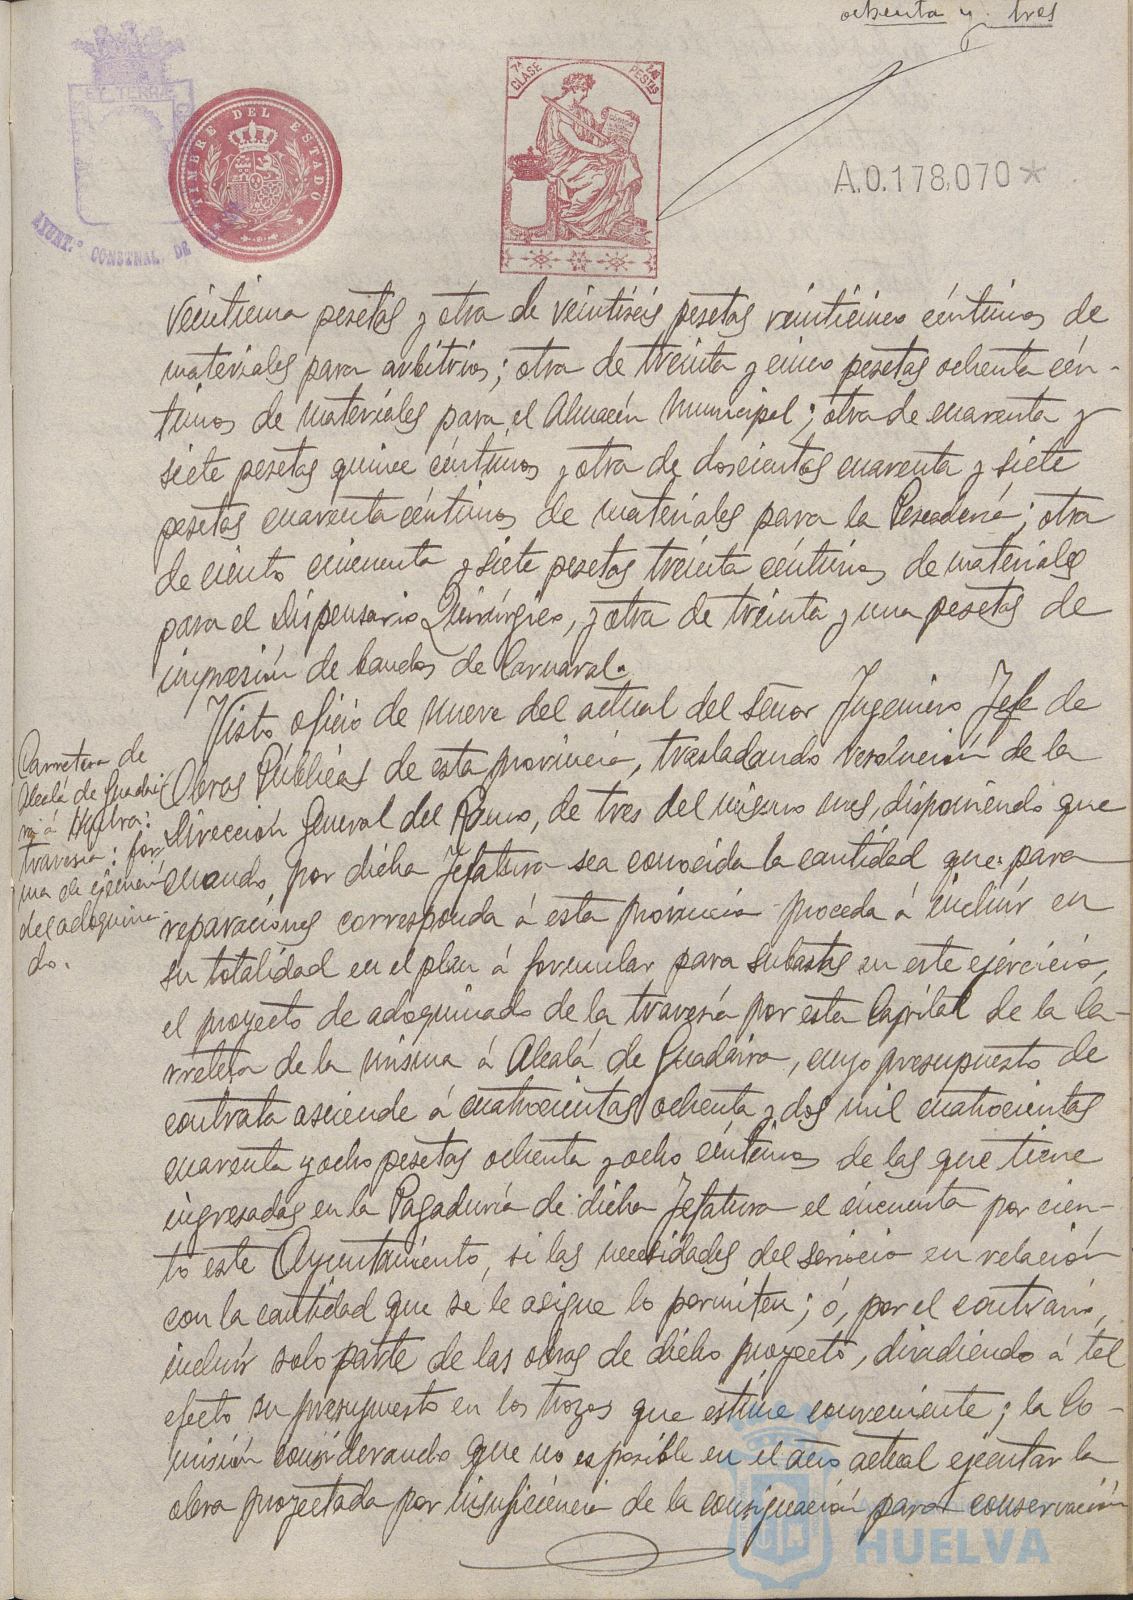 ochenta y tres
ET TERRÆ
TIMBRE DEL ESTADO
AYUNT.º CONSTNAL. DE
7ª CLASE
PESTAS
A.0.178,070*
veintiuna pesetas y otra de veintiseis pesetas veinticinco céntimos de
materiales para arbitrios; otra de treinta y cinco pesetas ochenta cén-
timos de materiales para el Almacén Municipal; otra de cuarenta y
siete pesetas quince céntimos y otra de doscientas cuarenta y siete
pesetas cuarenta céntimos de materiales para la Pescadería; otra
de ciento cincuenta y siete pesetas treinta céntimos de materiales
para el Dispensario Quirúrgico, y otra de treinta y una pesetas de
impresión de bandos de Carnaval.
Carretera de
Alcalá de Guadai
ra á Huelva:
travesía: for
ma de ejecución
del adoquina-
do.
Visto oficio de nueve del actual del señor Ingeniero Jefe de
Obras Públicas de esta provincia, trasladando resolución de la
Dirección General del Ramo, de tres del mismo mes, disponiendo que
cuando por dicha Jefatura sea conocida la cantidad que para
reparaciones corresponda á esta provincia proceda á incluir en
su totalidad en el plan á formular para subastas en este ejercicio,
el proyecto de adoquinado de la travesía por esta Capital de la Ca-
rretera de la misma á Alcalá de Guadaira, cuyo presupuesto de
contrata asciende á cuatrocientas ochenta y dos mil cuatrocientas
cuarenta y ocho pesetas ochenta y ocho céntimos de las que tiene
ingresadas en la Pagaduría de dicha Jefatura el cincuenta por cien-
to este Ayuntamiento, si las necesidades del servicio en relación
con la cantidad que se le asigne lo permiten; ó, por el contrario,
incluir solo parte de las obras de dicho proyecto, dividiendo á tal
efecto su presupuesto en los trozos que estime conveniente; la Co-
misión considerando que no es posible en el año actual ejecutar la
obra proyectada por insuficiencia de la consignación para conservación
HUELVA